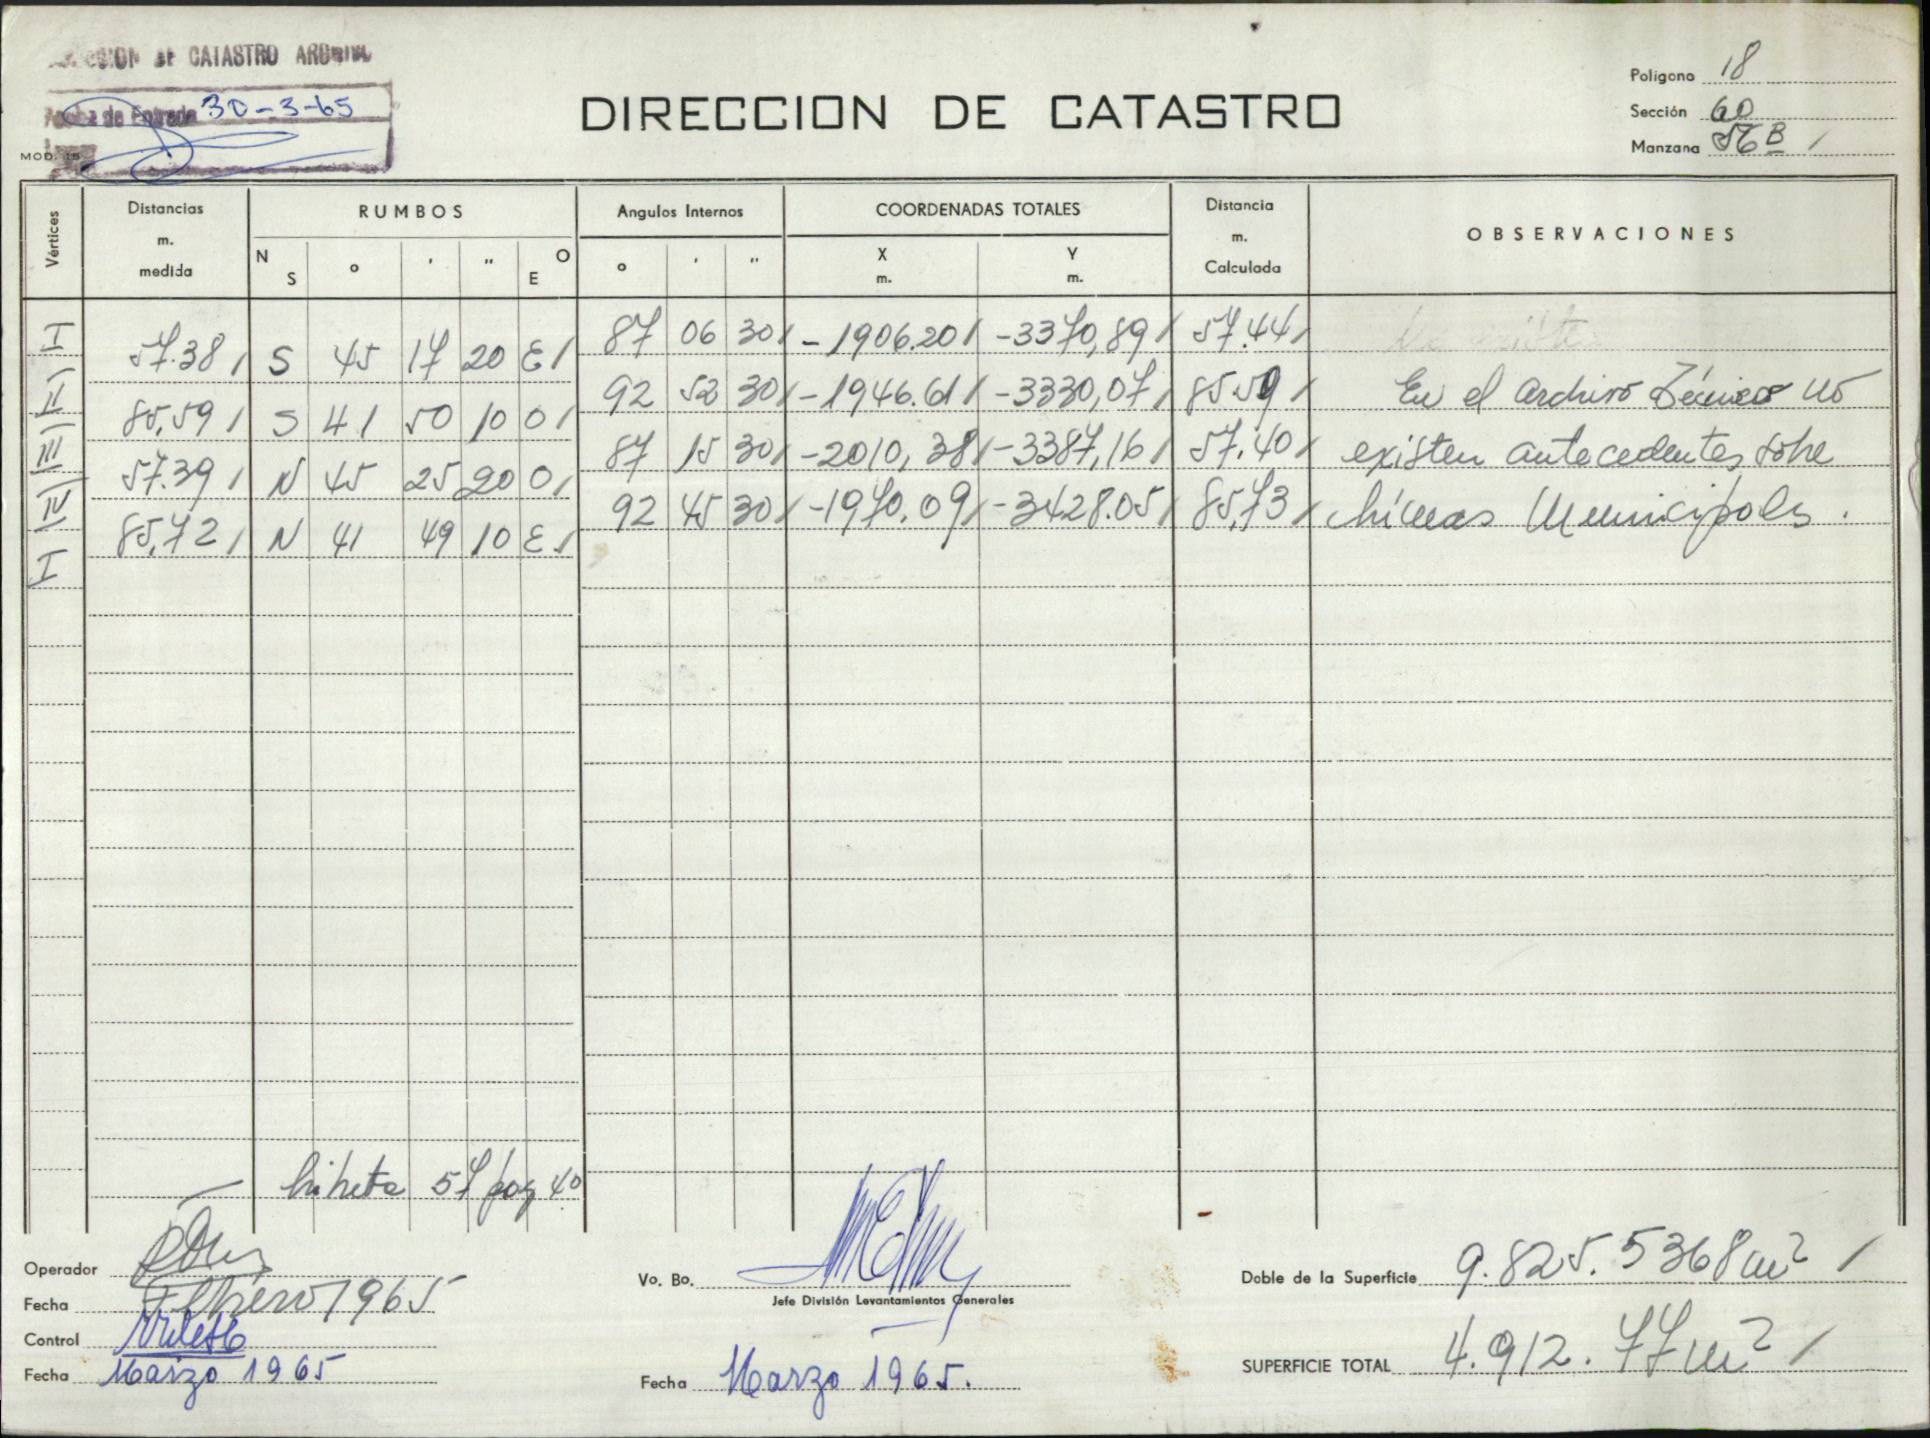 DE CATASTRO
Fecha de Entrada 30-3-65
MOD. 1B
DIRECCION DE CATASTRO
Polígono 18
Sección 60
Manzana 56 B /
Vértices
Distancias m. medida
RUMBOS
N S ° ' " E O
Angulos Internos
° ' "
COORDENADAS TOTALES
X m. Y m.
Distancia m. Calculada
OBSERVACIONES
I 87 06 30 / -1906.20 / -3370,89 / 57.44 /
57.38 / S 45 17 20 E /
II 92 52 30 / -1946.61 / -3330,07 / 85.59 / En el archivo Técnico no
85,59 / S 41 50 10 O /
III 87 15 30 / -2010,38 / -3387,16 / 57.40 / existen antecedentes sobre
57.39 / N 45 25 20 O /
IV 92 45 30 / -1970.09 / -3428.05 / 85,73 / Líneas Municipales.
85,72 / N 41 49 10 E /
I
Libreta 57 pag 40
Operador
Fecha Febrero 1965
Control
Fecha Marzo 1965
Vo. Bo.
Jefe División Levantamientos Generales
Fecha Marzo 1965.
Doble de la Superficie 9.825.5368 m² /
SUPERFICIE TOTAL 4.912.77 m² /